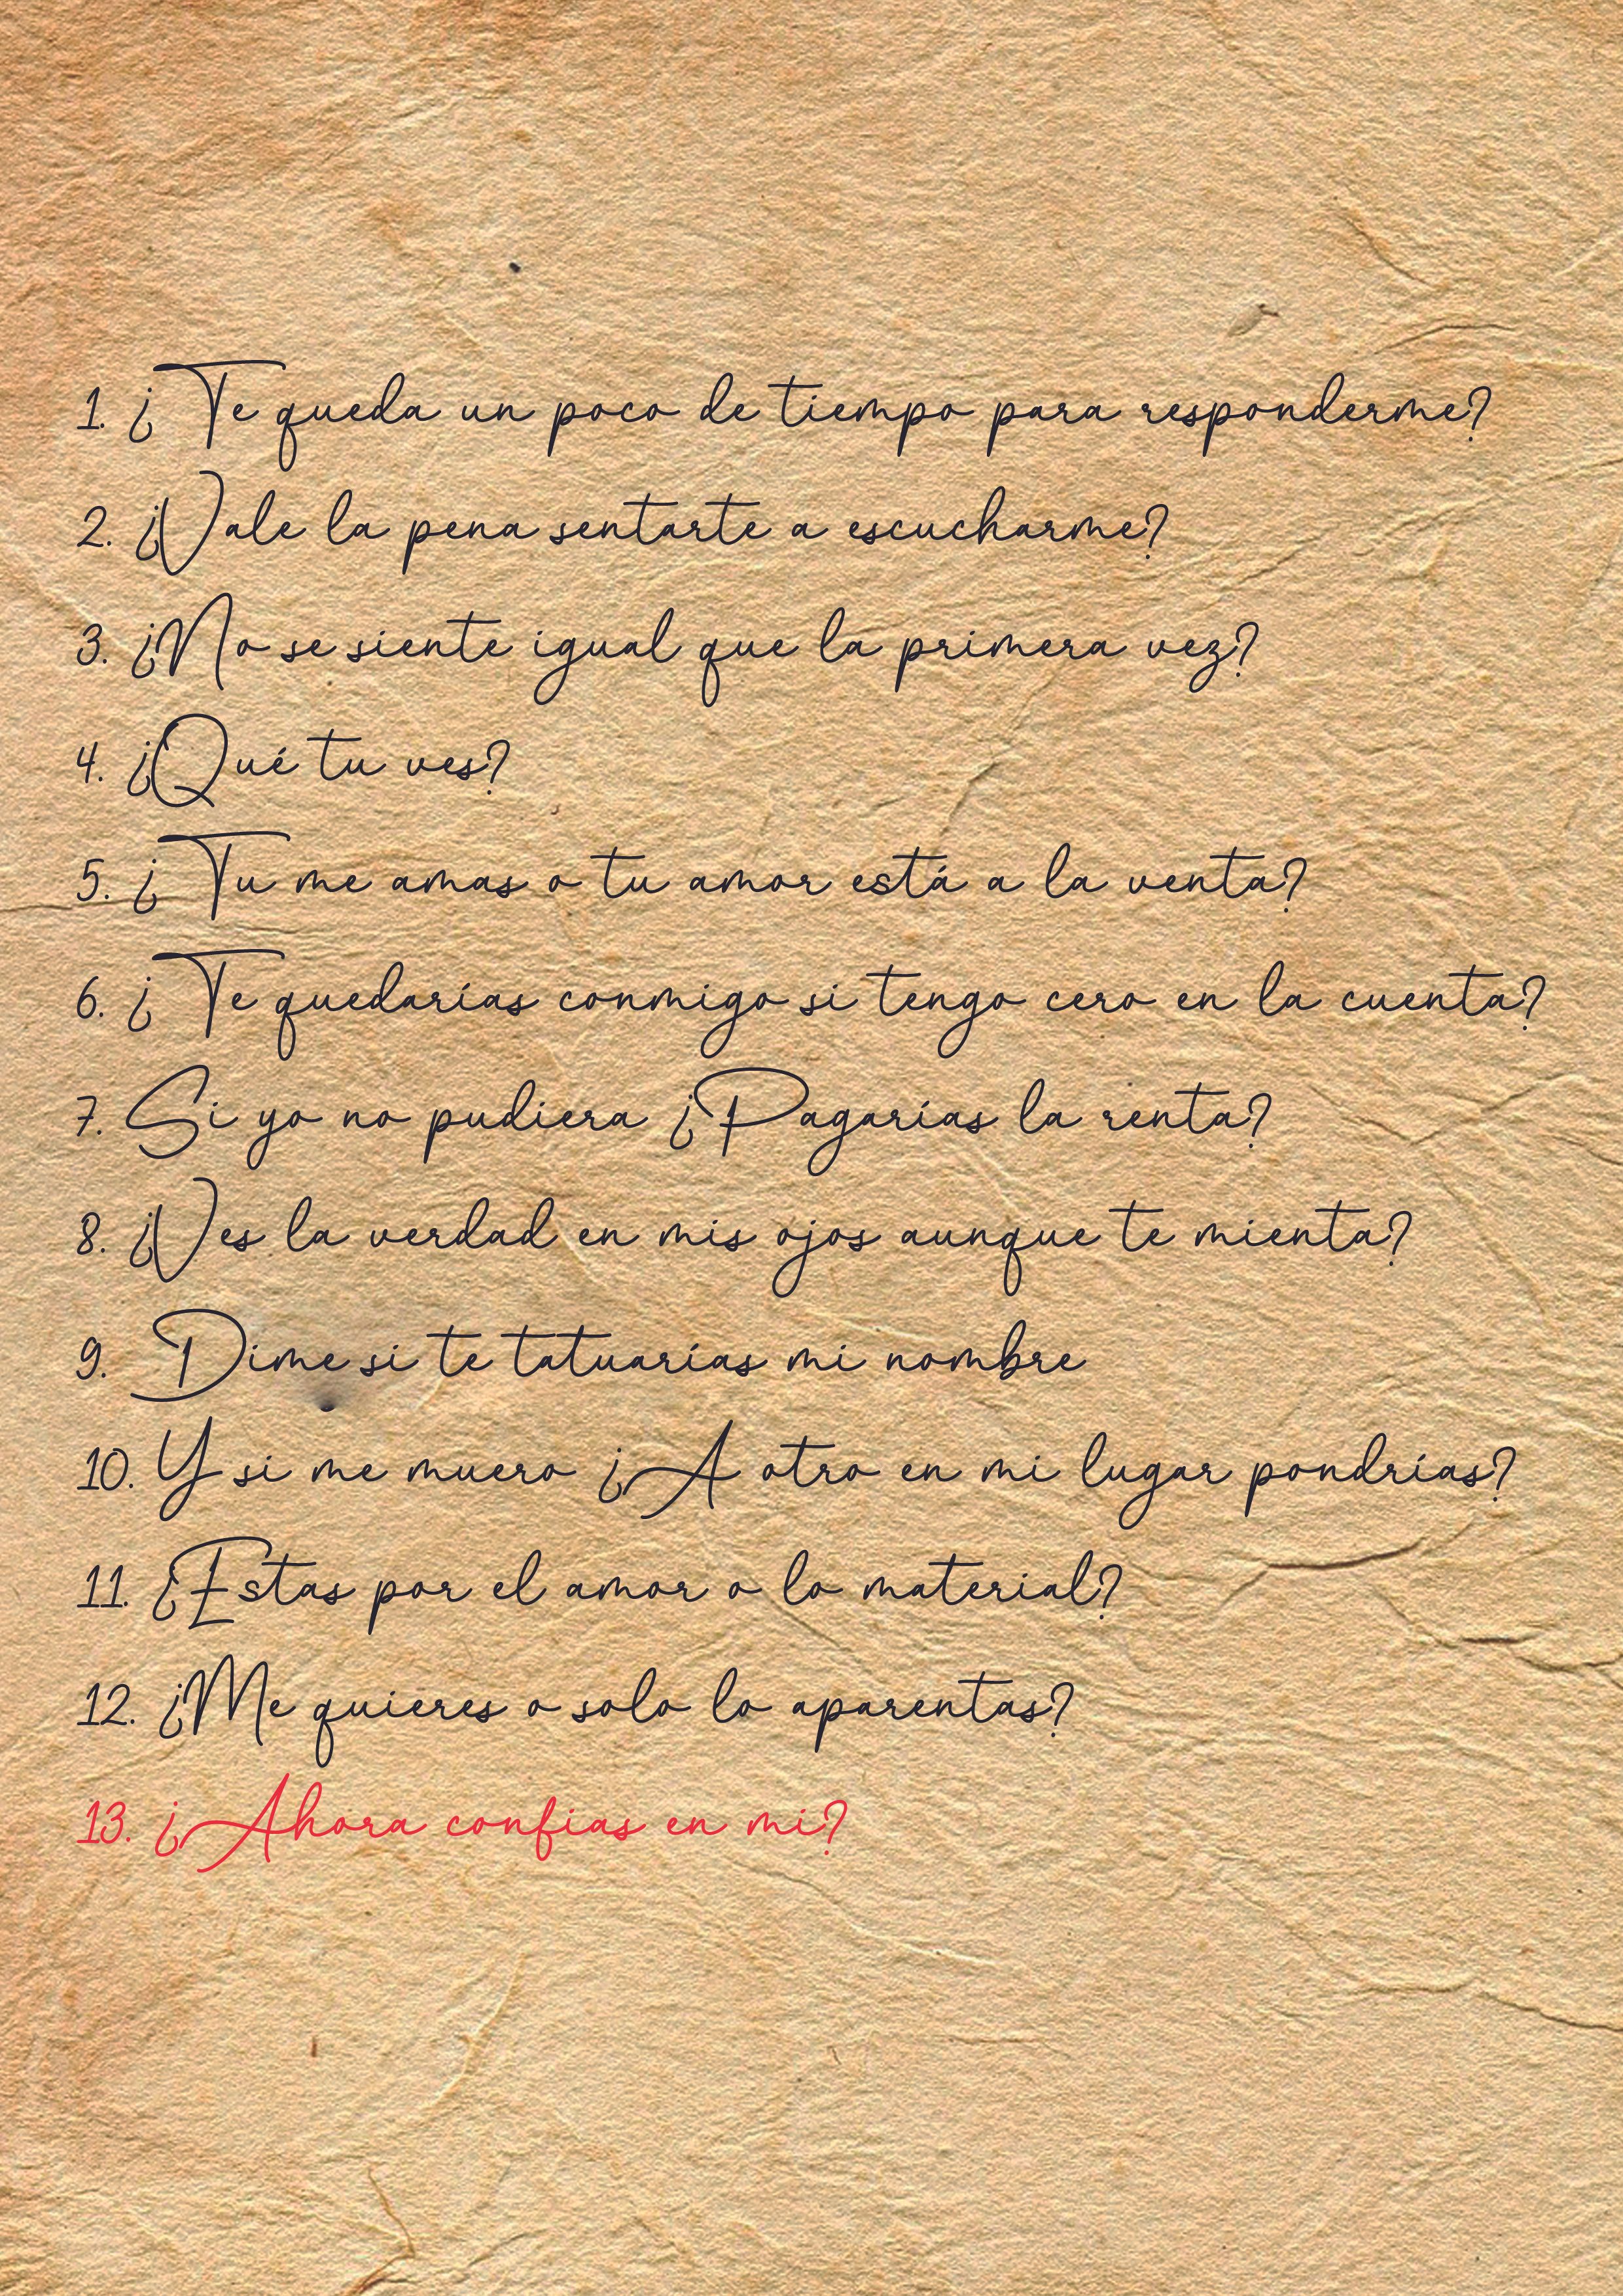 1. ¿Te queda un poco de tiempo para responderme?
2. ¿Vale la pena sentarte a escucharme?
3. ¿No se siente igual que la primera vez?
4. ¿Qué tu ves?
5. ¿Tu me amas o tu amor está a la venta?
6. ¿Te quedarías conmigo si tengo cero en la cuenta?
7. Si yo no pudiera ¿Pagarías la renta?
8. ¿Ves la verdad en mis ojos aunque te mienta?
9. Dime si te tatuarías mi nombre
10. Y si me muero ¿A otro en mi lugar pondrías?
11. ¿Estas por el amor o lo material?
12. ¿Me quieres o solo lo aparentas?
13. ¿Ahora confias en mi?